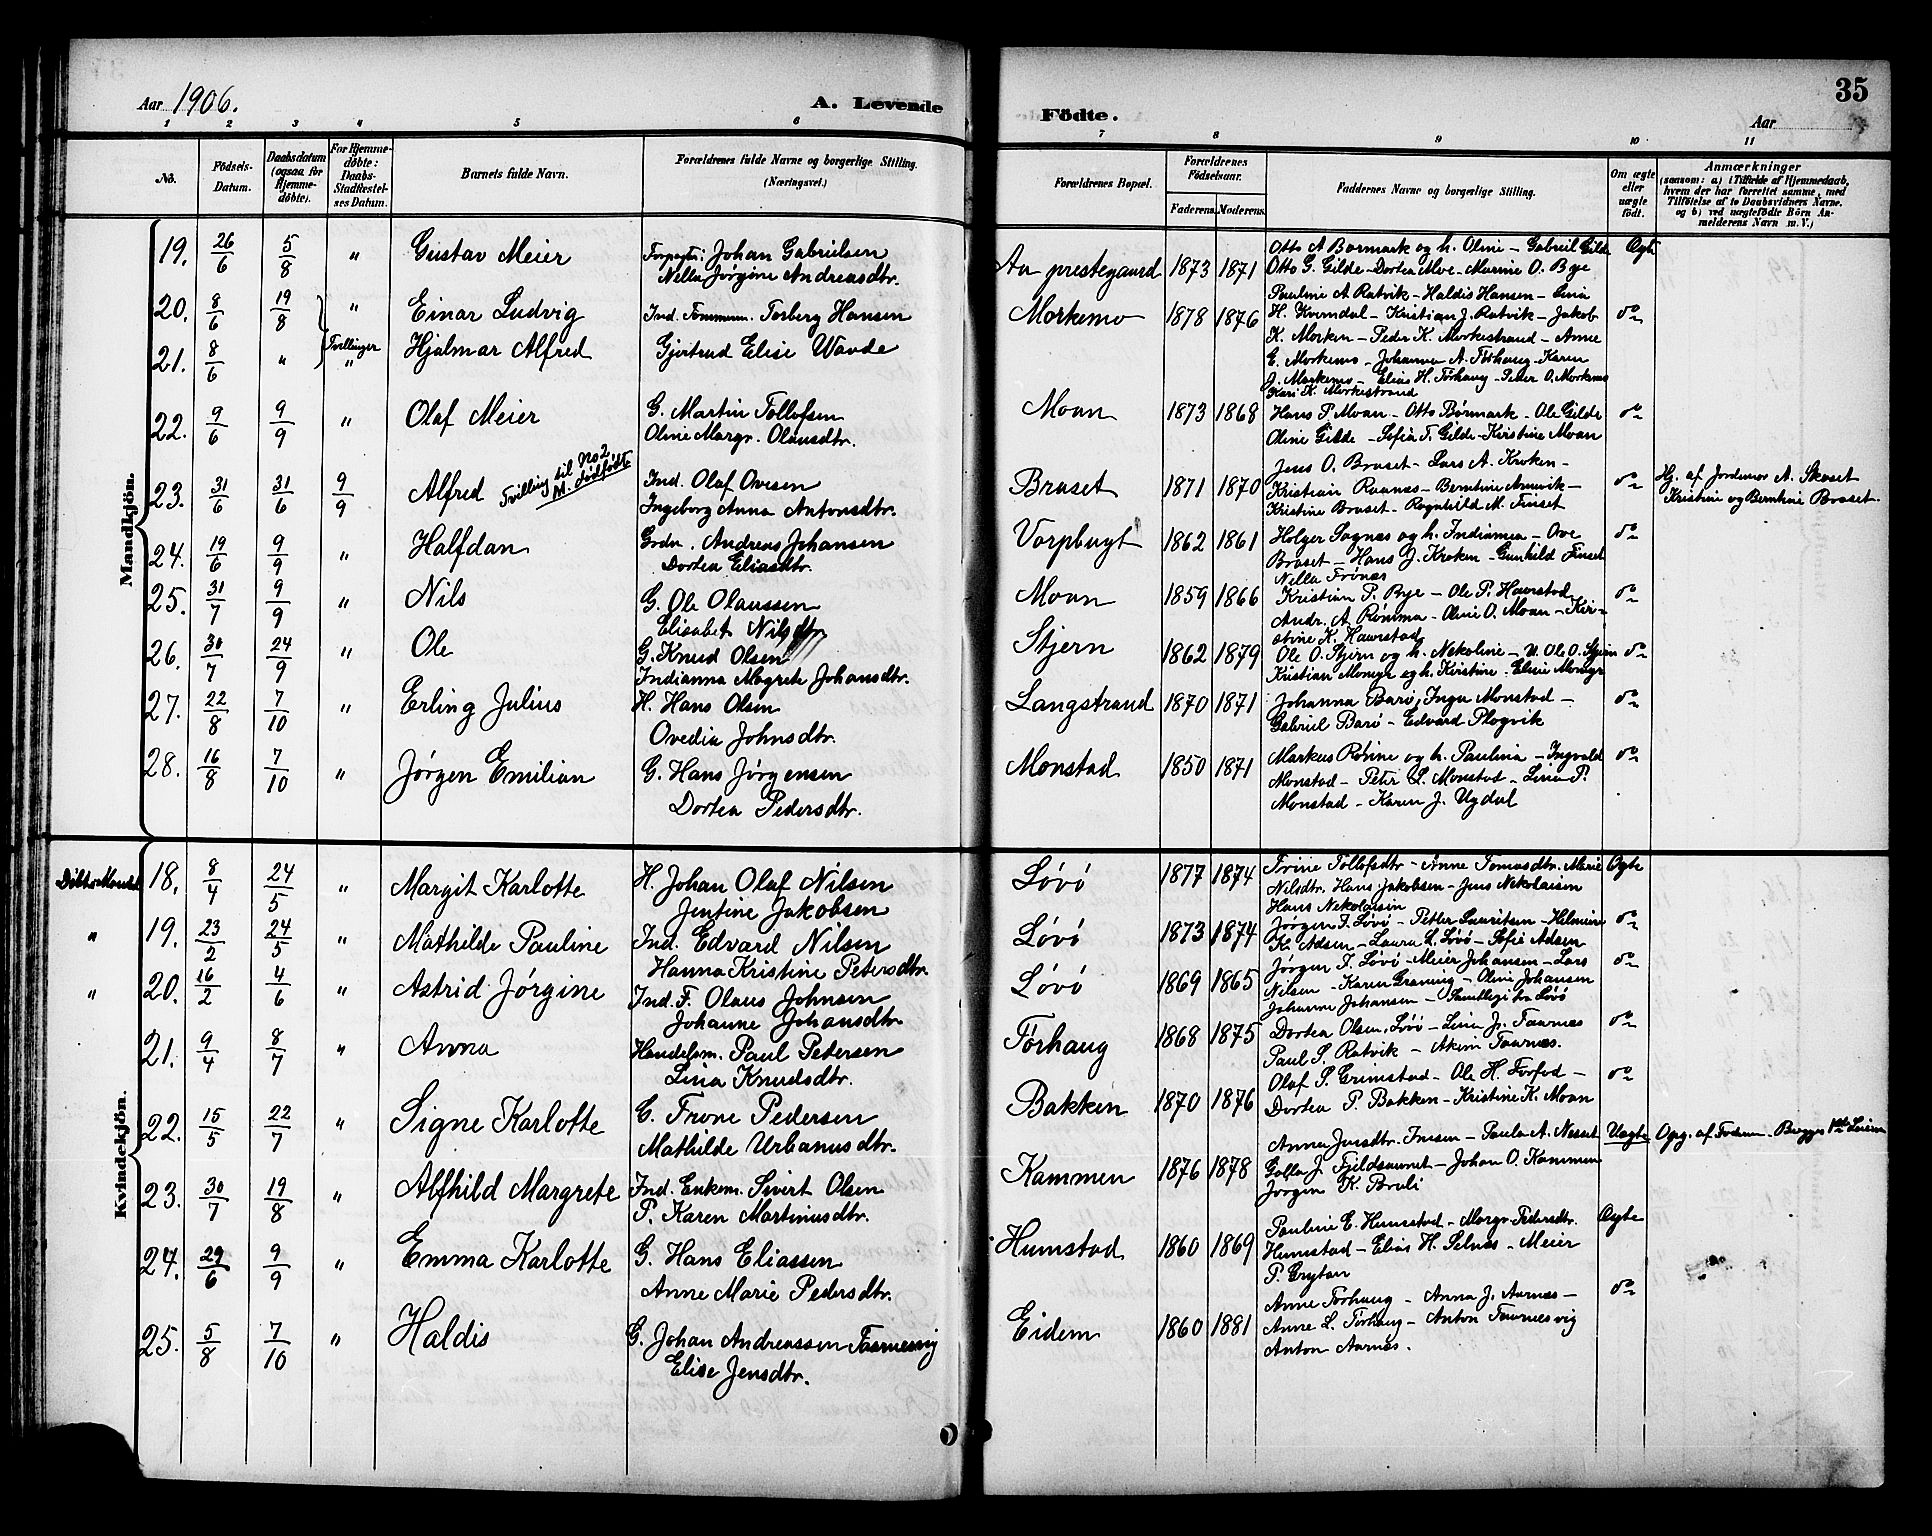 Aar 1906. A. Levende
Födte. Aar
35
1 2 3 4 5 6
7 8 9 10 11
No. Födsels-Datum. Daabsdatum (ogsaa for Hjemmedöbte). For Hjemmedøbte: Daabs-Stadfæstelses Datum. Barnets fulde Navn. Forældrenes fulde Navne og borgerlige Stilling. (Næringsvei.)
Forældrenes Bopæl. Forældrenes Fødselsaar. Faderens. Moderens. Faddernes Navne og borgerlige Stilling. Om ægte eller uægte födt. Anmærkninger (saasom: a) i Tilfælde af Hjemmedaab, hvem der har forrettet samme, med Tilföielse af to Daabsvidners Navne. og b) ved uægtefödte Börn Anmelderens Navn m. V.)
Mandkjön.
19. 26/6 5/8 " Gustav Meier Forpagter: Johan Gabrielsen
Nella Jørgine Andreasdtr.
Aa prestegaard 1873 1871 Otto A Barmark og h. Oline – Gabriel Gilde Ægte
Otto G. Gilde – Dortea Moe – Marine O. Bye
20. 8/6 19/8 " Einar Ludvig Ind. Tømmerm. Torberg Hansen
Morkemo 1878 1876 Pauline A Ratvik – Haldis Hansen – Lina do
H. Kvendal – Kristian J. Ratvik – Jakob
21. 8/6 " Tvillinger " Hjalmar Alfred Gjertrud Elise Waade
K. Morken – Peder K. Morkestrand – Anne
E. Morkemo – Johanna A. Tørhaug – Karen
J. Morkemo – Elias H. Tørhaug – Peter O. Morkemo
Kari K. Morkestrand
22. 9/6 9/9 " Olaf Meier G. Martin Tollofsen
Oline Margr. Olausdtr.
Moan 1873 1868 Hans P. Moan – Otto Børmark – Ole Gilde do
Oline Gilde – Sofia T. Gilde – Kristine Moan
23. 31/6 31/6 9/9 Alfred Tvilling til No 2, M. dødfødt Ind. Olaf Ovesen
Ingeborg Anna Antonsdtr.
Braset 1871 1870 Jens O. Braset – Lars A. Kroken – do Hj. af Jordemor A. Skaset
Kristian Raanes – Berntine Annvik – Kristine og Berntine Braset.
Kristine Braset – Ragnhild M. Finset
24. 19/6 9/9 " Halfdan Grdr. Andreas Johansen
Dortea Eliasdtr.
Vorpbugt 1862 1861 Holger Sognæs og h. Indianna – Ove do
Braset – Hans J. Kroken – Gunhild Finset
Nella Frønæs
25. 31/7 9/9 " Nils G. Ole Olaussen
Elisabet Nilsdtr
Moan 1859 1866 Kristian P. Bye – Ole P. Haarstad do
Andr. A Rømma – Oline O. Moan – Kir-
stine K. Haarstad
26. 30/7 24/9 " Ole G. Knud Olsen
Indianna Magrete Johansdtr.
Stjern 1862 1879 Ole O. Stjern og h. Nekoline – U. Ole O. Stjern do
Kristian Momyr og h. Kirstine. Elise Momyr
27. 22/8 7/10 " Erling Julius H. Hans Olsen
Ovedia Johnsdtr.
Langstrand 1870 1871 Johanna Barø, Inga Monstad – do
Gabriel Barø – Edvard Plogvik
28. 16/8 7/10 " Jørgen Emilian G. Hans Jørgensen
Dortea Pedersdtr.
Monstad 1850 1871 Markus Robine og h. Paulina – Ingvald do
Monstad – Peter L. Monstad – Lina P.
Monstad – Karen J. Ugdal
Kvindekjön.
18. 8/4 24/5 " Margit Karlotte H. Johan Olaf Nilsen
Jentine Jakobsen
Løvø 1877 1874 Trine Tollofsdtr – Anne Tomasdtr. Marie Ægte
Nilsdtr. Hans Jakobsen – Jens Nekolaisen
Hans Nekolaisen
" 19. 23/2 24/5 " Mathilde Pauline Ind. Edvard Nilsen
Hanna Kristine Petersdtr
Løvø 1873 1874 Jørgen F. Løvø – Petter Lauritsen – Helmine do
K. Adsen – Laura L. Løvø – Sofie Adsen
" 20. 16/2 4/6 " Astrid Jørgine Ind. F. Olaus Johnsen
Johanne Johansdtr
Løvø 1869 1865 Jørgen F. Løvø – Meier Johansen – Lars do
Nilsen – Karen Graning – Oline Johansen
Johanne Johansen – Samtlige fra Løvø
21. 9/4 8/7 " Anna Handelsm. Paul Pedersen
Lina Knudsdtr.
Tørhaug 1868 1875 Dortea Olsen, Løvø – Lina Jr. Taarnes do
Paul S. Ratvik – Akim Taarnes.
22. 15/5 22/7 " Signe Karlotte G. Trone Pedersen
Mathilde Urbanusdtr.
Bakken 1870 1876 Olaf S. Grimstad – Ole H. Forfod – do
Dortea P. Bakken – Kristine K. Moan
23. 30/7 19/8 " Alfhild Margrete Ind. Enkem. Sivert Olsen
P. Karen Martinusdtr.
Kammen 1876 1878 Anna Jensdtr. Imsen – Paula A. Nesset Uægte Opg. af Fodem.
Golla J. Fjeldsaunet – Johan O. Kammen
Jørgen K. Brali
24. 29/6 9/9 " Emma Karlotte G. Hans Eliassen
Anne Marie Pedersdtr.
Humstad 1860 1869 Pauline E. Humstad – Margr. Pedersdtr. Ægte
Humstad – Elias H. Selnes – Meier
P. Grytan
25. 5/8 7/10 " Haldis G. Johan Andreassen Taarnesvig
Elise Jensdtr.
Eidem 1860 1881 Anne Tørhaug – Anna J. Aarnes – do
Anne L. Tørhaug – Anton Taarnesvig
Anton Aarnes.